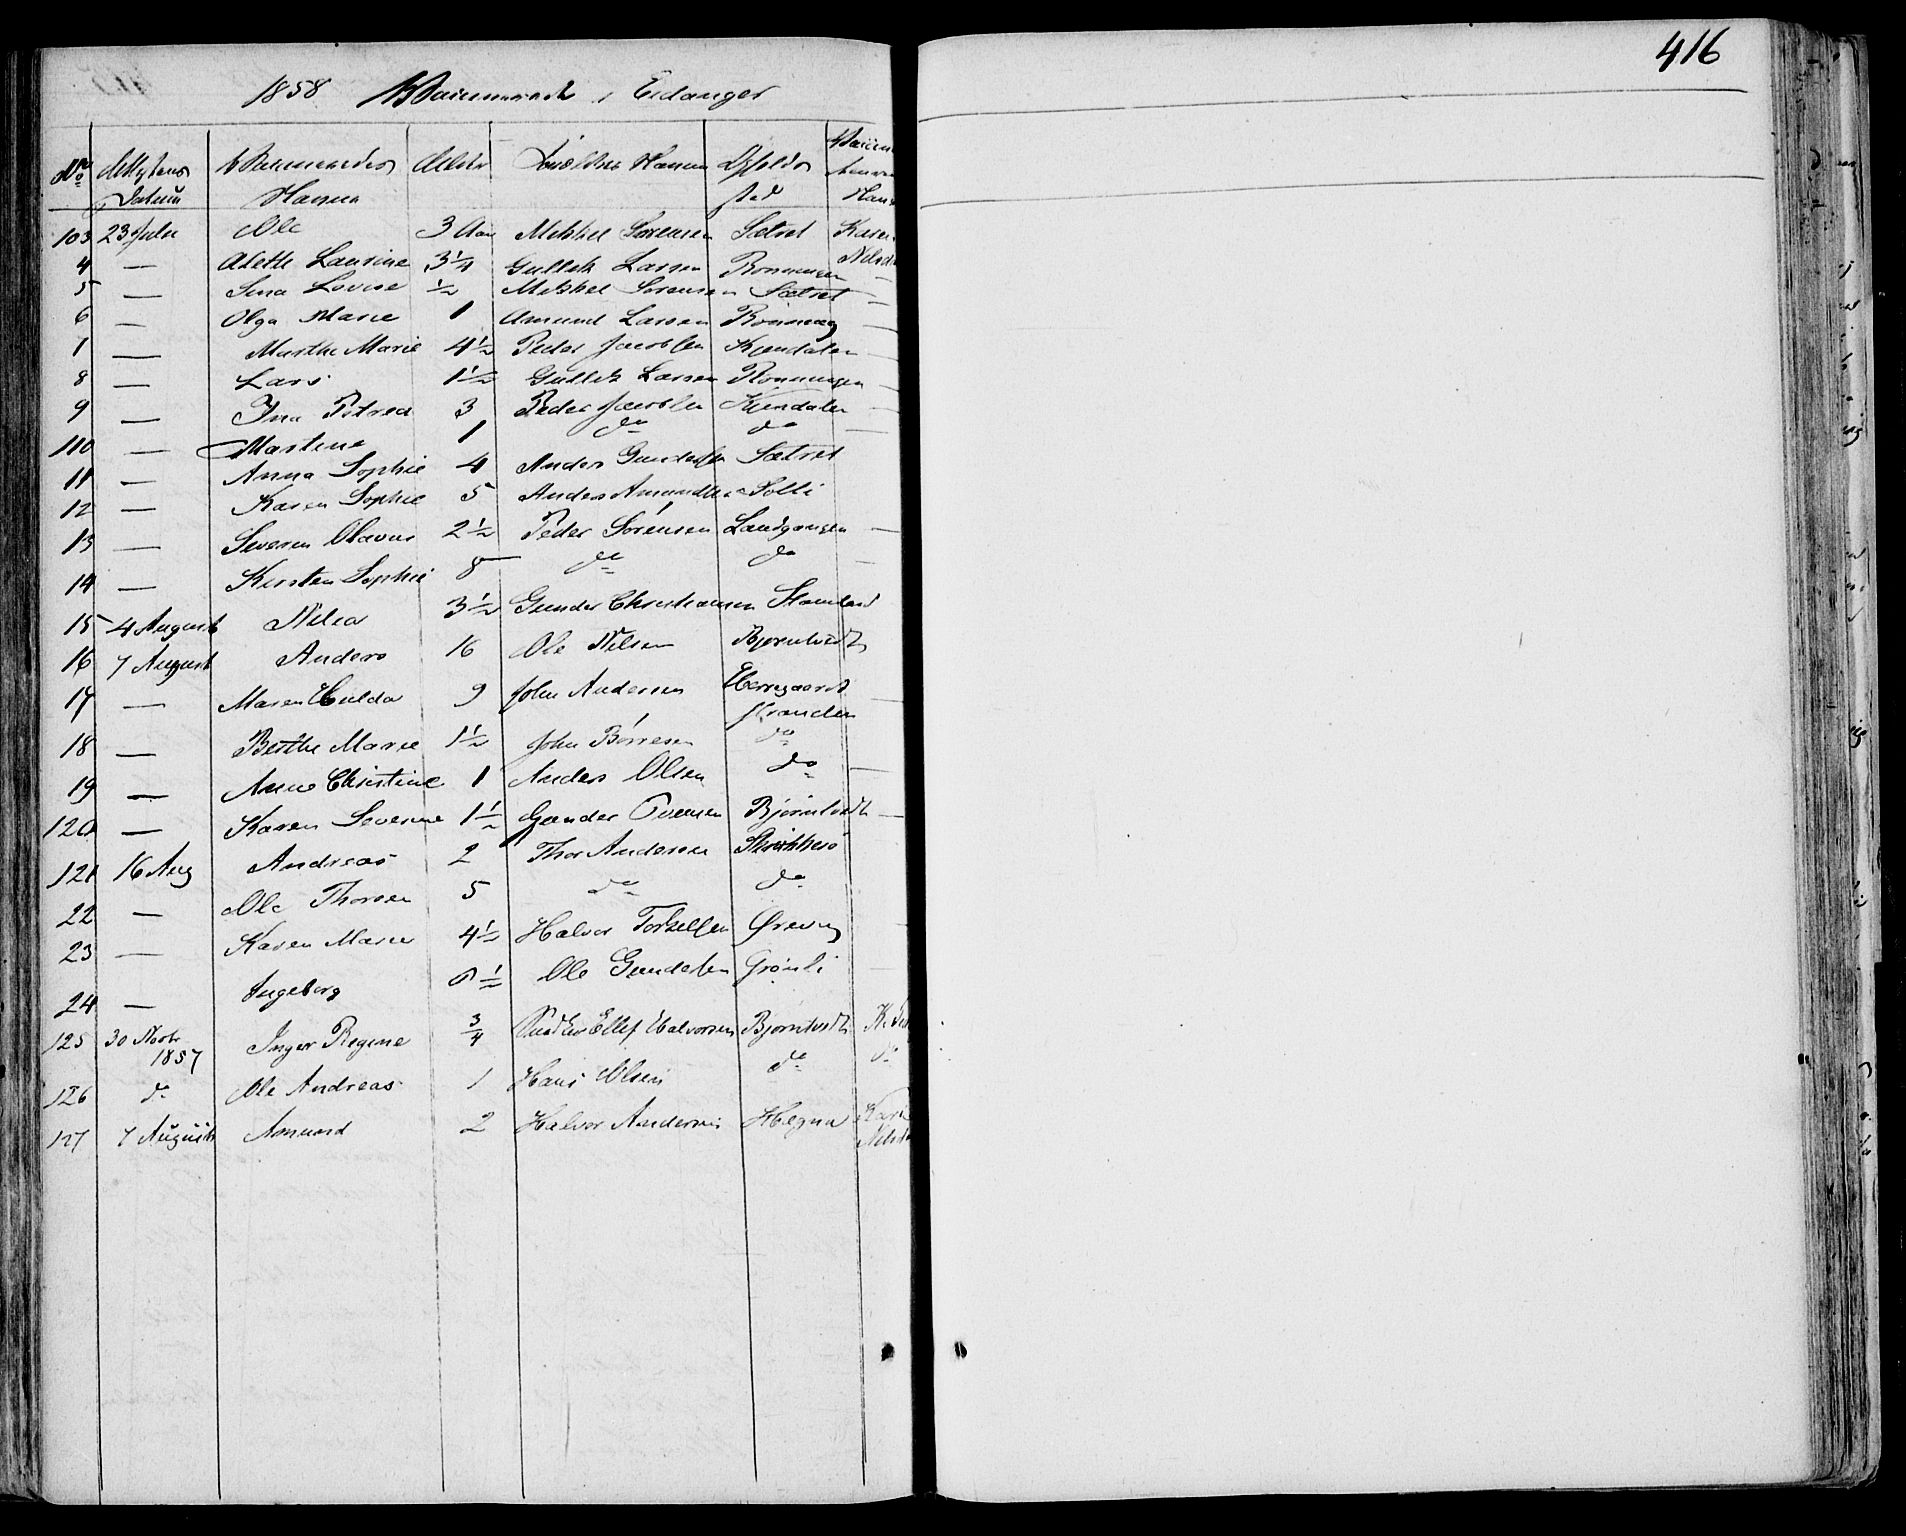 416
1858 Vaccinerede i Eidanger
No Attestens Datum Vaccineredes Navn Alder Forældres Navn Opholdssted
103 23 Julii Ole 3 Aar Mikkel Sørensen Sætret Karen
4 — Alette Laurine 3 1/4 Gullik Larsen Rønningen Nilsd
5 — Sina Lovise 1/2 Mikkel Sørensen Sætret —
6 — Olga Marie 1 Amund Larsen Rønning —
7 — Marthe Marie 4 1/2 Peder Jacobsen Kjendalen —
8 — Lars 1 1/2 Gullik Larsen Rønningen —
9 — Ina Petrea 3 Peder Jacobsen Kjendalen —
110 — Martine 1 do do —
11 — Anna Sophie 4 Anders Gundersen Sætret
12 — Karen Sophie 5 Anders Amundsen Solli
13 — Severin Olavus 2 1/2 Peder Sörensen Landgangen —
14 — Kirsten Sophie 8 do do —
15 4 August Nilia 3 1/2 Gunder Christiansen
16 7 August Anders 16 Ole Nilsen Bjørntvedt
17 — Maren Hulda 9 John Andersen Herregaard —
stranden
18 — Berthe Marie 1 1/2 John Børresen do
19 — Anne Christine 1 Anders Olsen do —
120 — Karen Severine 1 1/2 Gunder Evensen Bjørntvedt —
121 16 Aug Andreas 2 Thor Andersen
22 — Ole Thorsen 5 do do
23 — Karen Marie 4 1/2 Halvor Torkelsen Ørevig —
24 — Ingeborg 6 1/2 Ole Gundersen Grønli —
125 30 Novbr Inger Regine 3/4 Ellef Halvorsen Bjørntvedt
1857
126 do Ole Andreas 1 Hans Olsen do do
127 7 August Amund 2 Halvor Andersen Hægna Kari
Nilsd